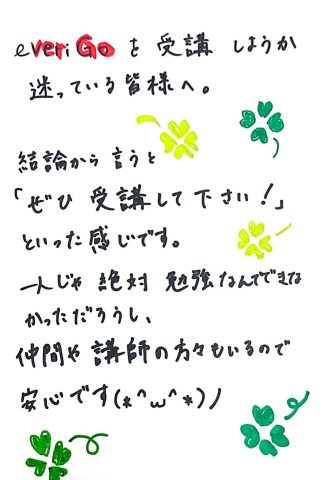 everiGoを受講しようか
迷っている皆様へ。
結論から言うと
「ぜひ受講して下さい！」
といった感じです。
一人じゃ絶対勉強なんてできな
かっただろうし、
仲間や講師の方々もいるので
安心です(*^ω^*)ノ